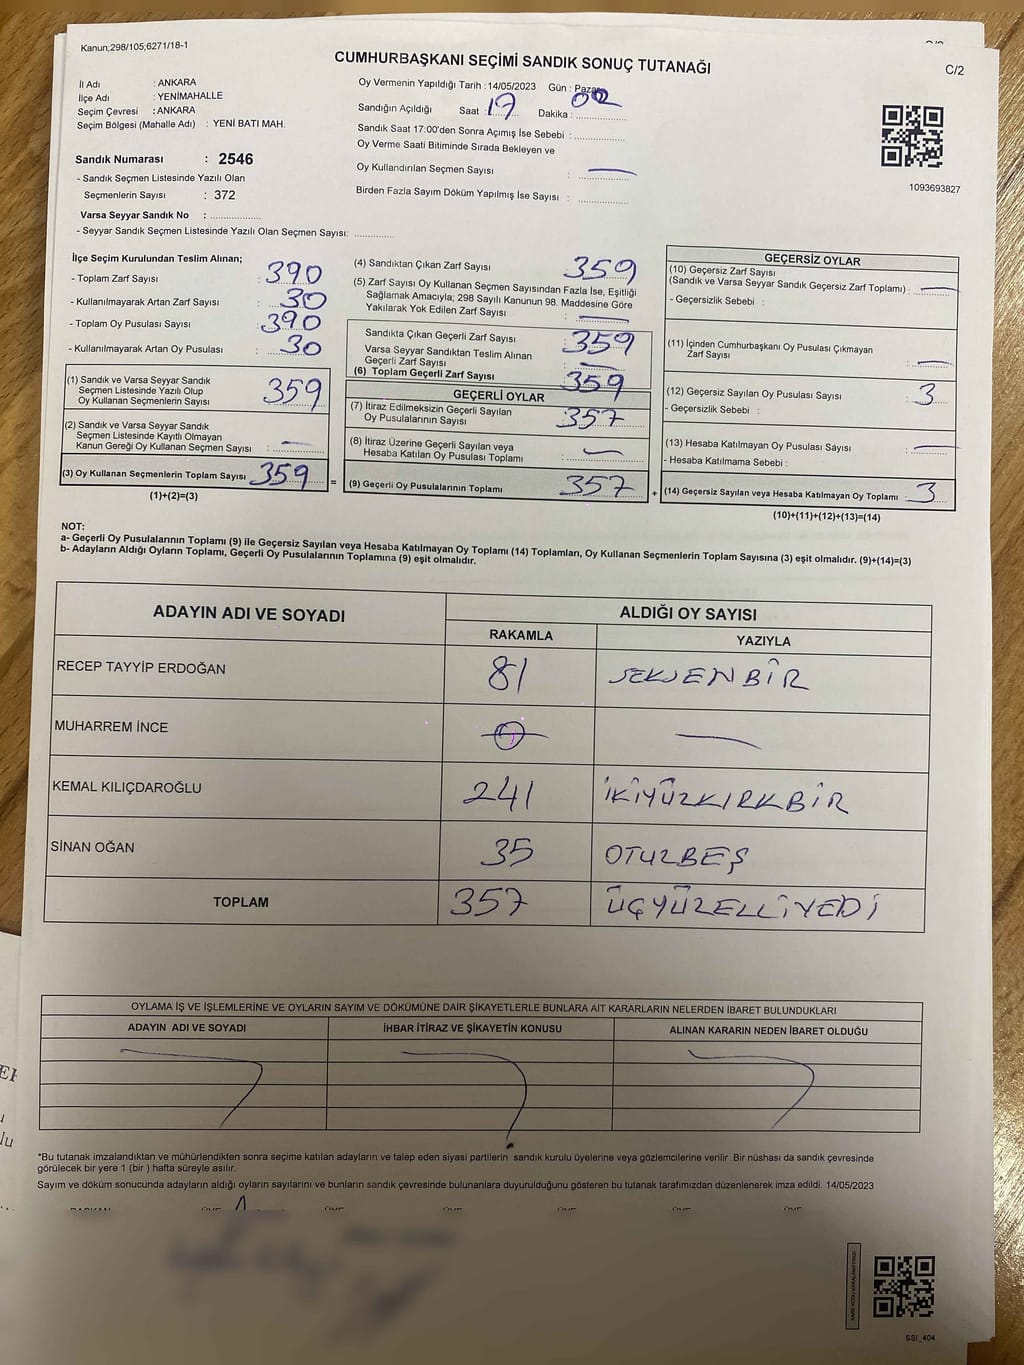 Kanun;298/105;6271/18-1
CUMHURBAŞKANI SEÇİMİ SANDIK SONUÇ TUTANAĞI
C/2
İl Adı : ANKARA
İlçe Adı : YENİMAHALLE
Seçim Çevresi : ANKARA
Seçim Bölgesi (Mahalle Adı) : YENİ BATI MAH.
Sandık Numarası : 2546
- Sandık Seçmen Listesinde Yazılı Olan
Seçmenlerin Sayısı : 372
Varsa Seyyar Sandık No : ....................
- Seyyar Sandık Seçmen Listesinde Yazılı Olan Seçmen Sayısı: ...............
Oy Vermenin Yapıldığı Tarih : 14/05/2023 Gün : Pazar
Sandığın Açıldığı Saat : 17 Dakika : 02
Sandık Saat 17:00'den Sonra Açımış İse Sebebi : ....................
Oy Verme Saati Bitiminde Sırada Bekleyen ve
Oy Kullandırılan Seçmen Sayısı : —
Birden Fazla Sayım Döküm Yapılmış İse Sayısı : ....................
1093693827
İlçe Seçim Kurulundan Teslim Alınan;
- Toplam Zarf Sayısı : 390
- Kullanılmayarak Artan Zarf Sayısı : 30
- Toplam Oy Pusulası Sayısı : 390
- Kullanılmayarak Artan Oy Pusulası : 30
(1) Sandık ve Varsa Seyyar Sandık
Seçmen Listesinde Yazılı Olup
Oy Kullanan Seçmenlerin Sayısı : 359
(2) Sandık ve Varsa Seyyar Sandık
Seçmen Listesinde Kayıtlı Olmayan
Kanun Gereği Oy Kullanan Seçmen Sayısı : —
(3) Oy Kullanan Seçmenlerin Toplam Sayısı : 359
(1)+(2)=(3)
=
(4) Sandıktan Çıkan Zarf Sayısı : 359
(5) Zarf Sayısı Oy Kullanan Seçmen Sayısından Fazla İse, Eşitliği
Sağlamak Amacıyla; 298 Sayılı Kanunun 98. Maddesine Göre
Yakılarak Yok Edilen Zarf Sayısı : —
Sandıkta Çıkan Geçerli Zarf Sayısı : 359
Varsa Seyyar Sandıktan Teslim Alınan
Geçerli Zarf Sayısı : —
(6) Toplam Geçerli Zarf Sayısı : 359
GEÇERLİ OYLAR
(7) İtiraz Edilmeksizin Geçerli Sayılan
Oy Pusulalarının Sayısı : 357
(8) İtiraz Üzerine Geçerli Sayılan veya
Hesaba Katılan Oy Pusulası Toplamı : —
(9) Geçerli Oy Pusulalarının Toplamı : 357
+
GEÇERSİZ OYLAR
(10) Geçersiz Zarf Sayısı
(Sandık ve Varsa Seyyar Sandık Geçersiz Zarf Toplamı) : —
- Geçersizlik Sebebi :
(11) İçinden Cumhurbaşkanı Oy Pusulası Çıkmayan
Zarf Sayısı : —
(12) Geçersiz Sayılan Oy Pusulası Sayısı : 3
- Geçersizlik Sebebi :
(13) Hesaba Katılmayan Oy Pusulası Sayısı : —
- Hesaba Katılmama Sebebi :
(14) Geçersiz Sayılan veya Hesaba Katılmayan Oy Toplamı : 3
(10)+(11)+(12)+(13)=(14)
NOT:
a- Geçerli Oy Pusulalarının Toplamı (9) ile Geçersiz Sayılan veya Hesaba Katılmayan Oy Toplamı (14) Toplamları, Oy Kullanan Seçmenlerin Toplam Sayısına (3) eşit olmalıdır. (9)+(14)=(3)
b- Adayların Aldığı Oyların Toplamı, Geçerli Oy Pusulalarının Toplamına (9) eşit olmalıdır.
ADAYIN ADI VE SOYADI ALDIĞI OY SAYISI
RAKAMLA YAZIYLA
RECEP TAYYİP ERDOĞAN 81 SEKSENBİR
MUHARREM İNCE 0 —
KEMAL KILIÇDAROĞLU 241 İKİYÜZKIRKBİR
SİNAN OĞAN 35 OTUZBEŞ
TOPLAM 357 ÜÇYÜZELLİYEDİ
OYLAMA İŞ VE İŞLEMLERİNE VE OYLARIN SAYIM VE DÖKÜMÜNE DAİR ŞİKAYETLERLE BUNLARA AİT KARARLARIN NELERDEN İBARET BULUNDUKLARI
ADAYIN ADI VE SOYADI İHBAR İTİRAZ VE ŞİKAYETİN KONUSU ALINAN KARARIN NEDEN İBARET OLDUĞU
*Bu tutanak imzalandıktan ve mühürlendikten sonra seçime katılan adayların ve talep eden siyasi partilerin sandık kurulu üyelerine veya gözlemcilerine verilir .Bir nüshası da sandık çevresinde
görülecek bir yere 1 (bir ) hafta süreyle asılır.
Sayım ve döküm sonucunda adayların aldığı oyların sayılarını ve bunların sandık çevresinde bulunanlara duyurulduğunu gösteren bu tutanak tarafımızdan düzenlenerek imza edildi. 14/05/2023
SSI_404